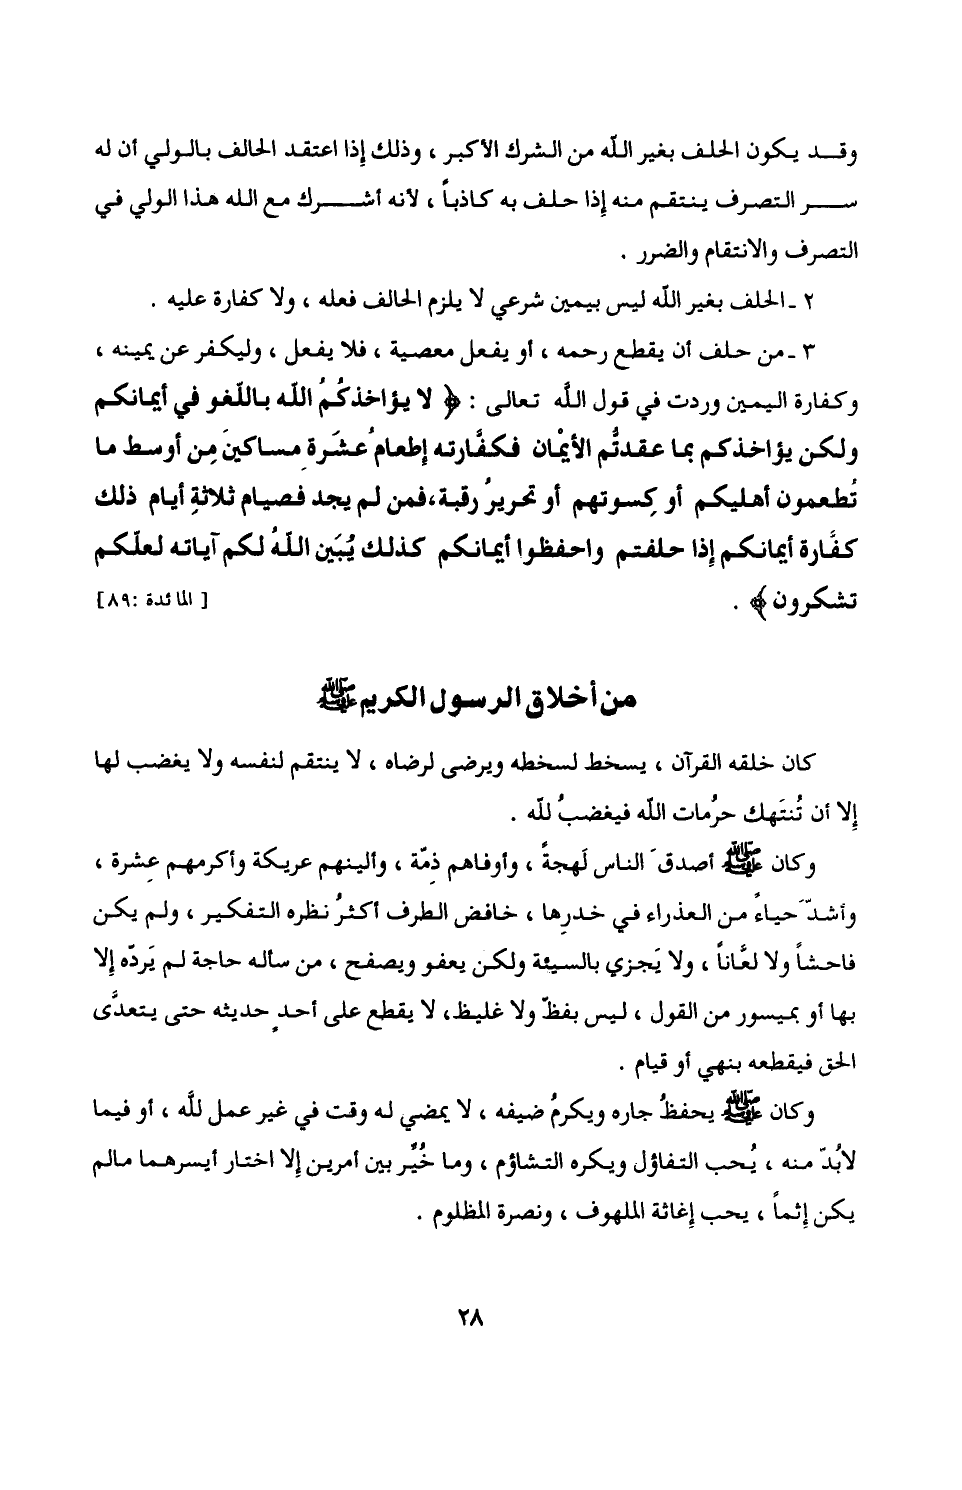 وقـــد يـكون الحلف بغير اللّه من الشرك الأكبر ، وذلك إذا اعتقد الحالف بالولي أن له
ســـــر التصرف ينتقم منه إذا حلف به كاذباً ، لأنه أشـــــرك مع الله هذا الولي في
التصرف والانتقام والضرر .
٢ ـ الحلف بغير اللّه ليس بيمين شرعي لا يلزم الحالف فعله ، ولا كفارة عليه .
٣ ـ من حلف أن يقطع رحمه ، أو يفعل معصية ، فلا يفعل ، وليكفر عن يمينه ،
وكفارة اليمين وردت في قول اللَّه تعالى : ﴿ لا يؤاخذكُمُ اللّه باللّغو في أيمانكم
ولكن يؤاخذكم بما عقدتُّم الأيْمان فكفَّارته إطعامُ عشَرة مساكينَ مِن أوسط ما
تُطعمون أهليكم أو كِسوتهم أو تحريرُ رقبة، فمن لم يجد فصيام ثلاثةِ أيام ذلك
كفَّارة أيمانكم إذا حلفتم واحفظوا أيمانكم كذلك يُبَين اللهُ لكم آياته لعلّكم
تشكرون﴾ . [ المائدة :٨٩]
من أخلاق الرسول الكريم ﷺ
كان خلقه القرآن ، يسخط لسخطه ويرضى لرضاه ، لا ينتقم لنفسه ولا يغضب لها
إلا أن تُنتَهك حرُمات اللّه فيغضبُ للّه .
وكان ﷺ أصدقَ الناس لَهجةً ، وأوفاهم ذِمّة ، وألينهم عريكة وأكرمهم عِشرة ،
وأشدّ حياءً من العذراء في خدرِها ، خافض الطرف أكثرُ نظره التفكير ، ولم يكن
فاحشاً ولا لعَّاناً ، ولا يَجزي بالسيئة ولكن يعفو ويصفح ، من سأله حاجة لم يَردّه إلا
بها أو بميسور من القول ، ليس بفظّ ولا غليظ، لا يقطع على أحدٍ حديثه حتى يتعدَّى
الحق فيقطعه بنهي أو قيام .
وكان ﷺ يحفظُ جاره ويكرمُ ضيفه ، لا يمضي له وقت في غير عمل للَّه ، أو فيما
لابُدّ منه ، يُحب التفاؤل ويكره التشاؤم ، وما خُيِّر بين أمرين إلا اختار أيسرهما مالم
يكن إثماً ، يحب إغاثة الملهوف ، ونصرة المظلوم .
٢٨